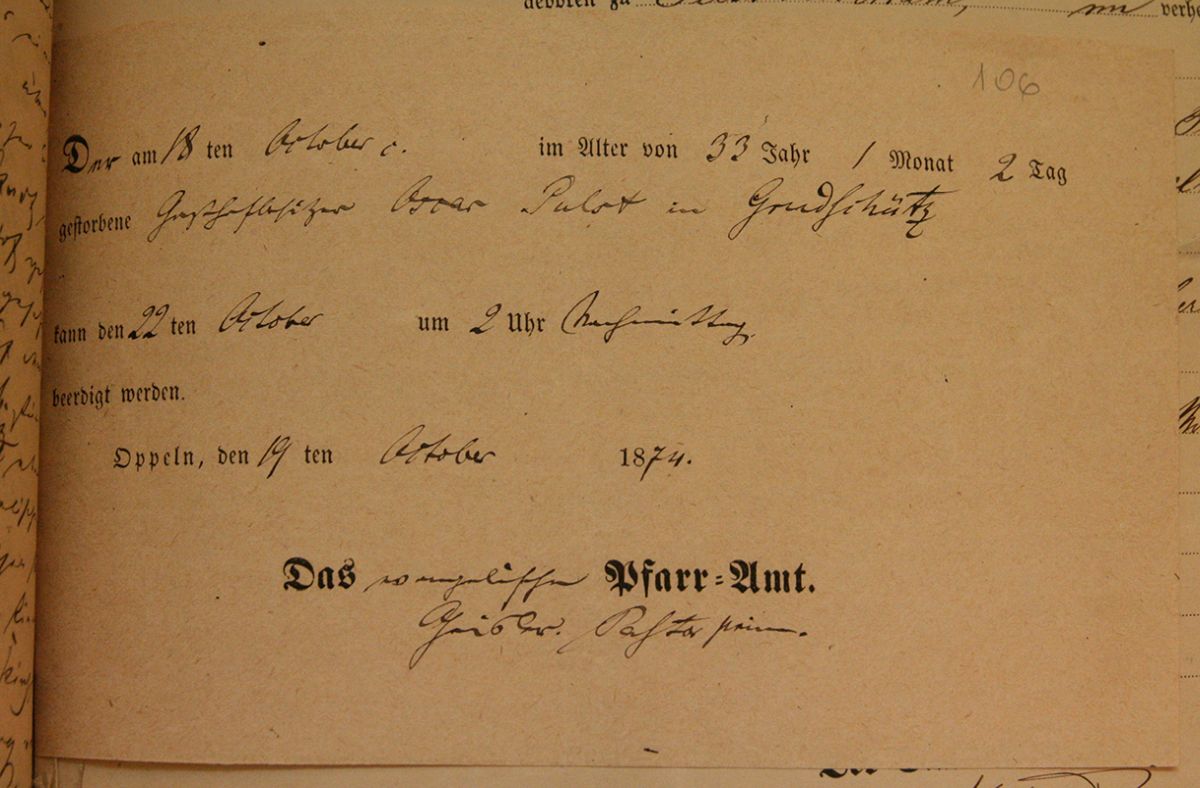 geboren zu
106
Der am 18 ten October c. im Alter von 33 Jahr 1 Monat 2 Tag
gestorbene Gasthofbesitzer Oscar Pulst in Grudschütz
kann den 22 ten October um 2 Uhr Nachmittag
beerdigt werden.
Oppeln, den 19 ten October 1874.
Das evangelische Pfarr-Amt.
Geisler. Pastor prim.